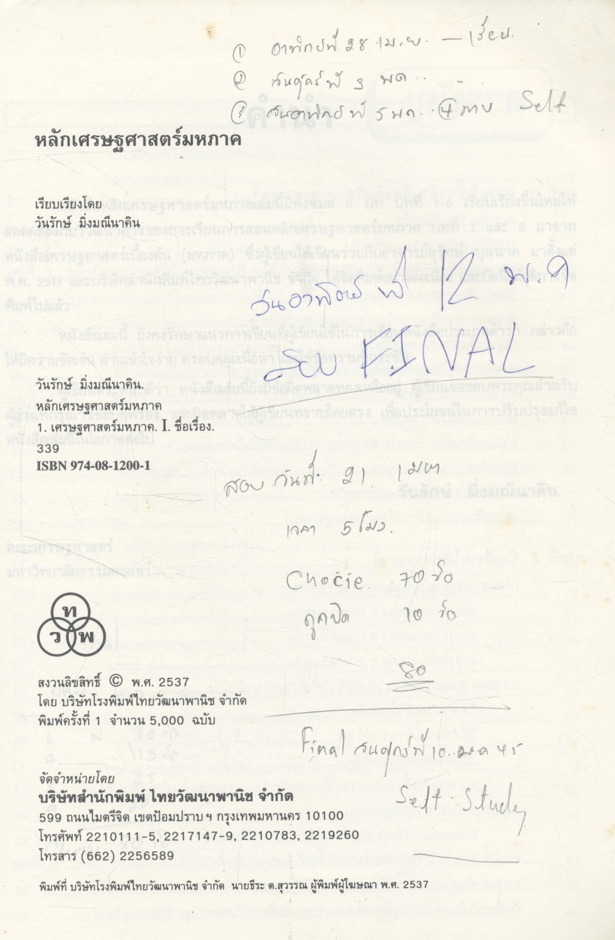 ① อาทิตย์ที่ 28 เม.ย. — เรียน
② วันศุกร์ที่ 3 พค.
③ วันอาทิตย์ที่ 5 พค. Self
หลักเศรษฐศาสตร์มหภาค
เรียบเรียงโดย
วันรักษ์ มิ่งมณีนาคิน
วันอาทิตย์ ที่ 12 พ.ค
สอบ FINAL
วันรักษ์ มิ่งมณีนาคิน.
หลักเศรษฐศาสตร์มหภาค
1. เศรษฐศาสตร์มหภาค. I. ชื่อเรื่อง.
339
ISBN 974-08-1200-1
สอบ วันที่ 21 เมษา
เวลา 5 โมง.
Chocie 70 ข้อ
ถูกผิด 10 ข้อ
80
ท
ว พ
สงวนลิขสิทธิ์ © พ.ศ. 2537
โดย บริษัทโรงพิมพ์ไทยวัฒนาพานิช จำกัด
พิมพ์ครั้งที่ 1 จำนวน 5,000 ฉบับ
Final วันศุกร์ที่ 10 45
Self Study
จัดจำหน่ายโดย
บริษัทสำนักพิมพ์ ไทยวัฒนาพานิช จำกัด
599 ถนนไมตรีจิต เขตป้อมปราบ ฯ กรุงเทพมหานคร 10100
โทรศัพท์ 2210111-5, 2217147-9, 2210783, 2219260
โทรสาร (662) 2256589
พิมพ์ที่ บริษัทโรงพิมพ์ไทยวัฒนาพานิช จำกัด นายธีระ ต.สุวรรณ ผู้พิมพ์ผู้โฆษณา พ.ศ. 2537